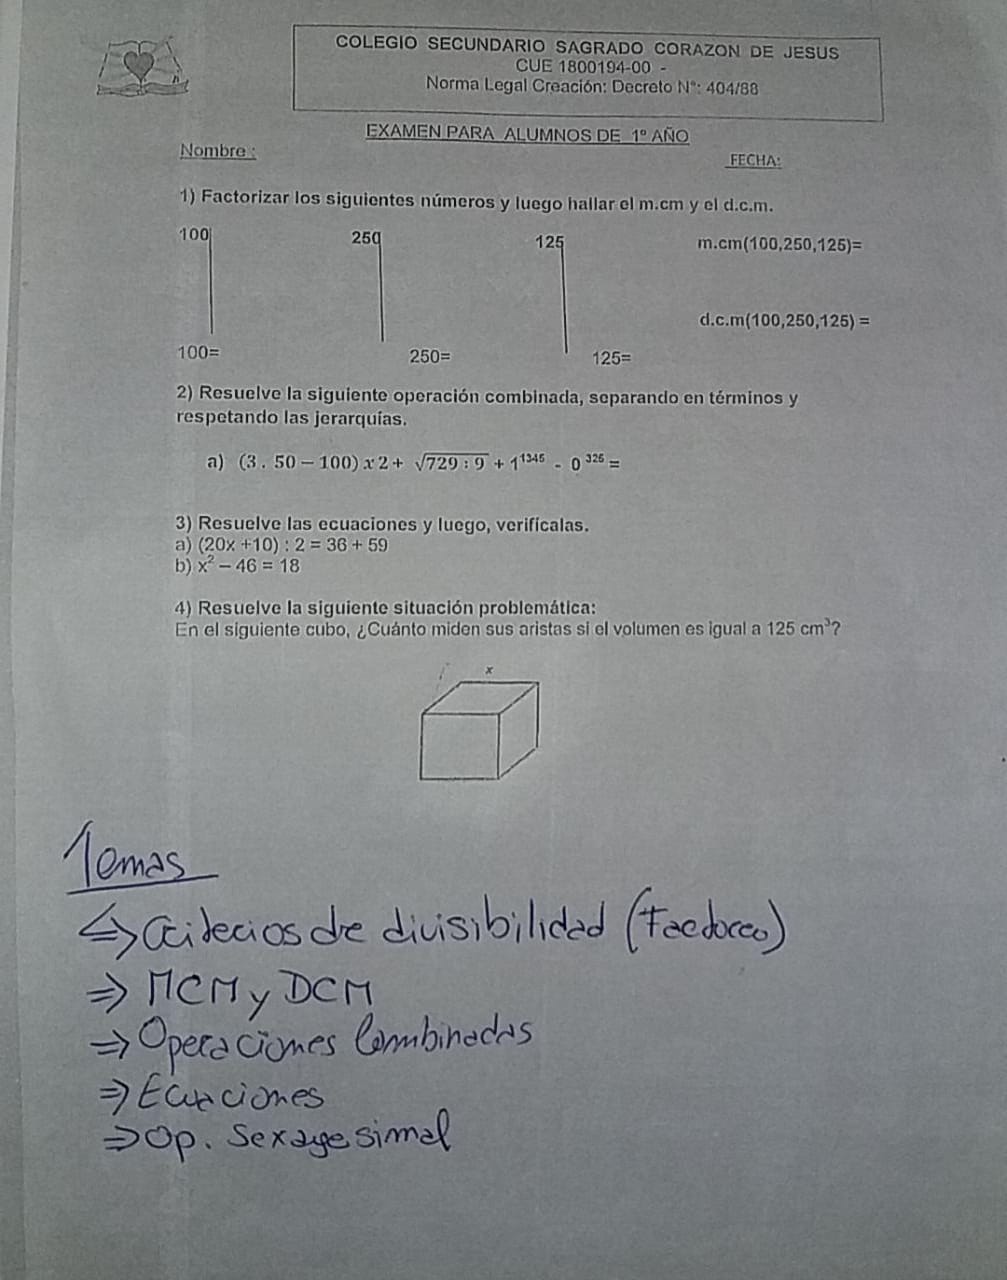 COLEGIO SECUNDARIO SAGRADO CORAZON DE JESUS
CUE 1800194-00 -
Norma Legal Creación: Decreto N°: 404/88
EXAMEN PARA ALUMNOS DE 1º AÑO
Nombre :
FECHA:
1) Factorizar los siguientes números y luego hallar el m.cm y el d.c.m.
100 250 125 m.cm(100,250,125)=
d.c.m(100,250,125) =
100= 250= 125=
2) Resuelve la siguiente operación combinada, separando en términos y
respetando las jerarquías.
a) (3 . 50 – 100) x 2 + √729 : 9 + 1¹³⁴⁵ - 0³²⁶ =
3) Resuelve las ecuaciones y luego, verifícalas.
a) (20x +10) : 2 = 36 + 59
b) x² – 46 = 18
4) Resuelve la siguiente situación problemática:
En el siguiente cubo, ¿Cuánto miden sus aristas si el volumen es igual a 125 cm³?
x
Temas
⇒ Criterios de divisibilidad (Factoreo)
⇒ MCM y DCM
⇒ Operaciones Combinadas
⇒ Ecuaciones
⇒ Op. Sexagesimal